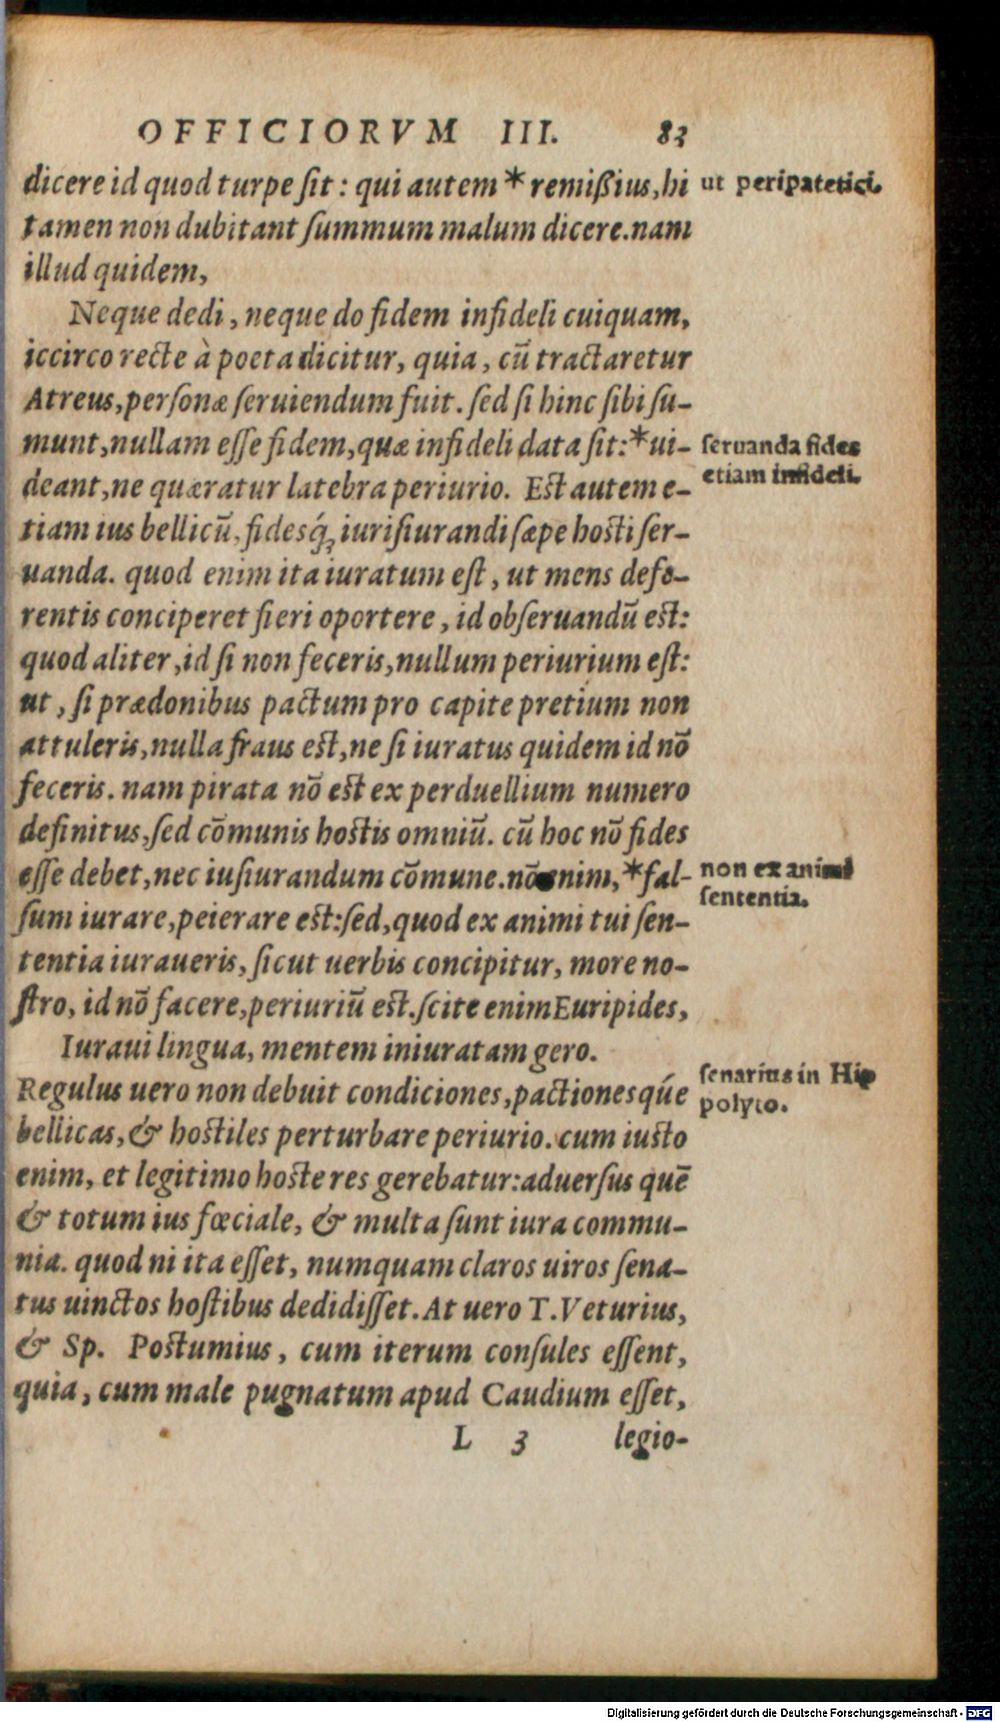 OFFICIORVM III. 83
dicere id quod turpe ſit: qui autem * remißius, hi
ut peripatetici.
tamen non dubitant ſummum malum dicere. nam
illud quidem,
Neque dedi, neque do fidem infideli cuiquam,
iccirco recte à poeta dicitur, quia, cū tractaretur
Atreus, perſonæ ſeruiendum fuit. ſed ſi hinc ſibi ſu-
munt, nullam eſſe fidem, quæ infideli data ſit: * ui-
ſeruanda fides
etiam infideli.
deant, ne quæratur latebra periurio. Est autem e-
tiam ius bellicū, fidesq́; iurisiurandi ſæpe hosti ſer-
uanda. quod enim ita iuratum eſt, ut mens defe-
rentis conciperet fieri oportere, id obſeruandū est:
quod aliter, id ſi non feceris, nullum periurium eſt:
ut, ſi prædonibus pactum pro capite pretium non
attuleris, nulla fraus est, ne ſi iuratus quidem id nō
feceris. nam pirata nō est ex perduellium numero
definitus, ſed cōmunis hostis omniū. cū hoc nō fides
eſſe debet, nec iuſiurandum cōmune. nō enim, * fal-
non ex animi
ſententia.
ſum iurare, peierare est: ſed, quod ex animi tui ſen-
tentia iuraueris, ſicut uerbis concipitur, more no-
ſtro, id nō facere, periuriū est. ſcite enim Euripides,
Iuraui lingua, mentem iniuratam gero.
ſenarius in Hip
polyto.
Regulus uero non debuit condiciones, pactionesq́ue
bellicas, & hostiles perturbare periurio. cum iusto
enim, et legitimo hoste res gerebatur: aduerſus quē
& totum ius fœciale, & multa ſunt iura commu-
nia. quod ni ita eſſet, numquam claros uiros ſena-
tus uinctos hoſtibus dedidiſſet. At uero T. Veturius,
& Sp. Postumius, cum iterum conſules eſſent,
quia, cum male pugnatum apud Caudium eſſet,
L 3 legio-
Digitalisierung gefördert durch die Deutsche Forschungsgemeinschaft - DFG